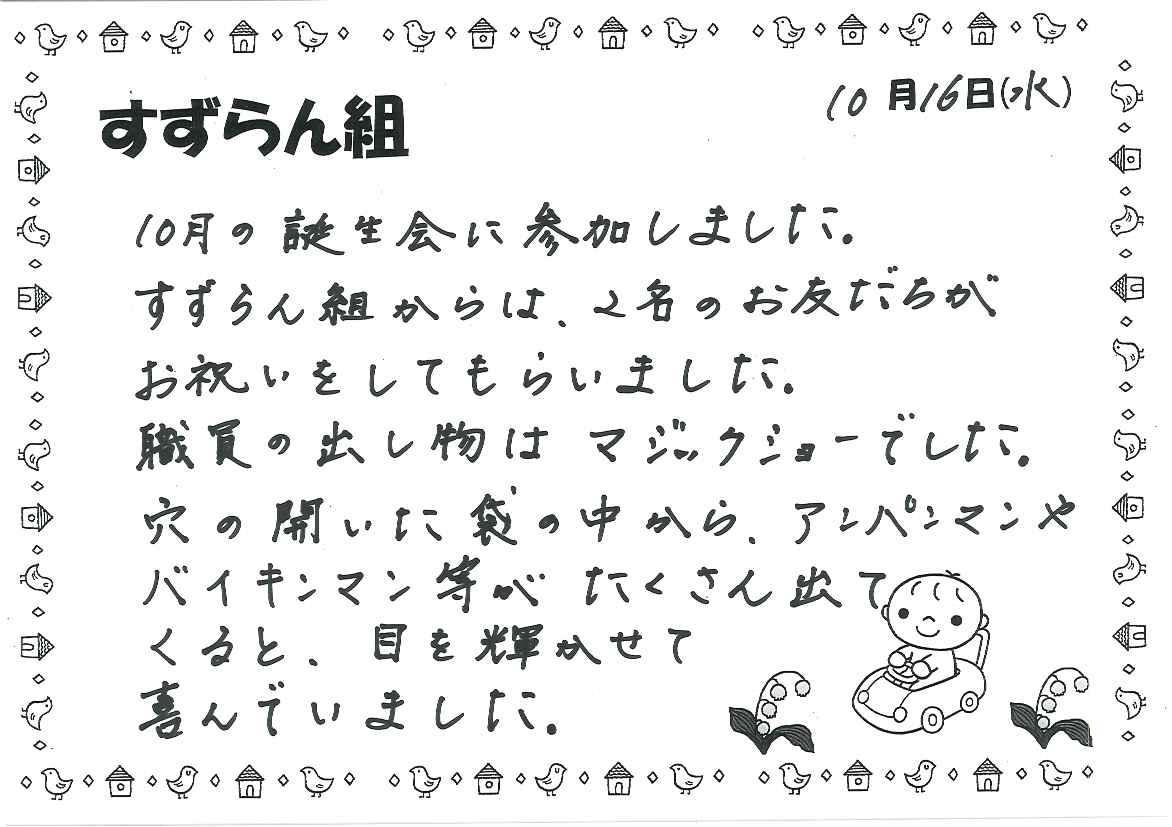 すずらん組
10月16日(水)
10月の誕生会に参加しました。
すずらん組からは、2名のお友だちが
お祝いをしてもらいました。
職員の出し物はマジックショーでした。
穴の開いた袋の中から、アンパンマンや
バイキンマン等が たくさん出て
くると、目を輝かせて
喜んでいました。